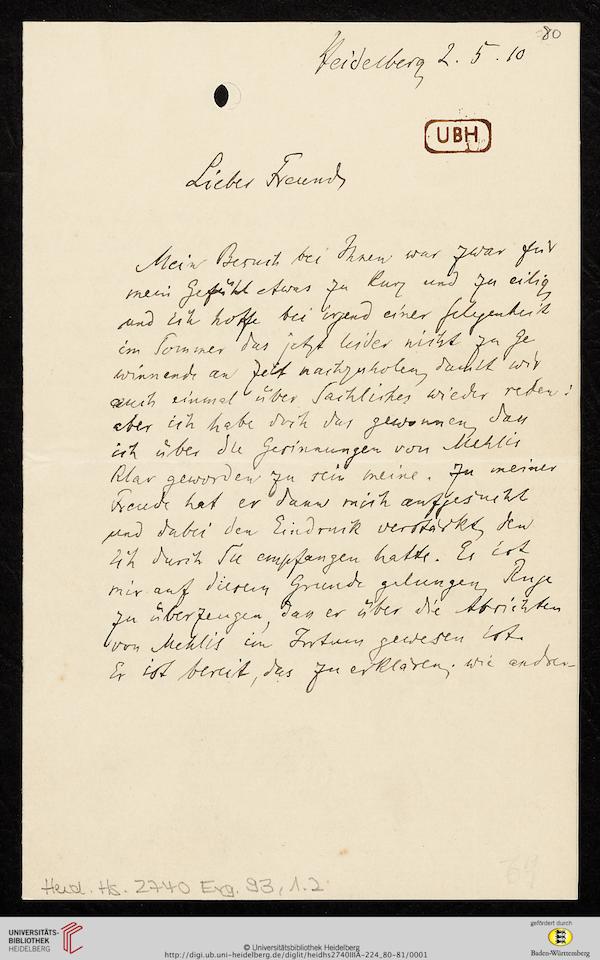 80
Heidelberg 2. 5. 10
UBH
Lieber Freund,
Mein Besuch bei Ihnen war zwar für
mein Gefühl etwas zu kurz und zu eilig
und ich hoffe bei irgend einer Gelegenheit
im Sommer das jetzt leider nicht zu Ge
winnende an Zeit nachzuholen, damit wir
auch einmal über Sachliches wieder reden:
aber ich habe doch das gewonnen, dass
ich über die Gesinnungen von Mehlis
klar geworden zu sein meine. Zu meiner
Freude hat er dann mich aufgesucht
und dabei den Eindruck verstärkt, den
ich durch Sie empfangen hatte. Es ist
mir auf diesem Grunde gelungen, Ruge
zu überzeugen, dass er über die Absichten
von Mehlis im Irrtum gewesen ist.
Er ist bereit, das zu erklären, wie
Heid. Hs. 2740 Erg. 93, 1.2
UNIVERSITÄTS-
BIBLIOTHEK
HEIDELBERG
© Universitätsbibliothek Heidelberg
http://digi.ub.uni-heidelberg.de/diglit/heidhs2740IIIA-224_80-81/0001
gefördert durch
Baden-Württemberg